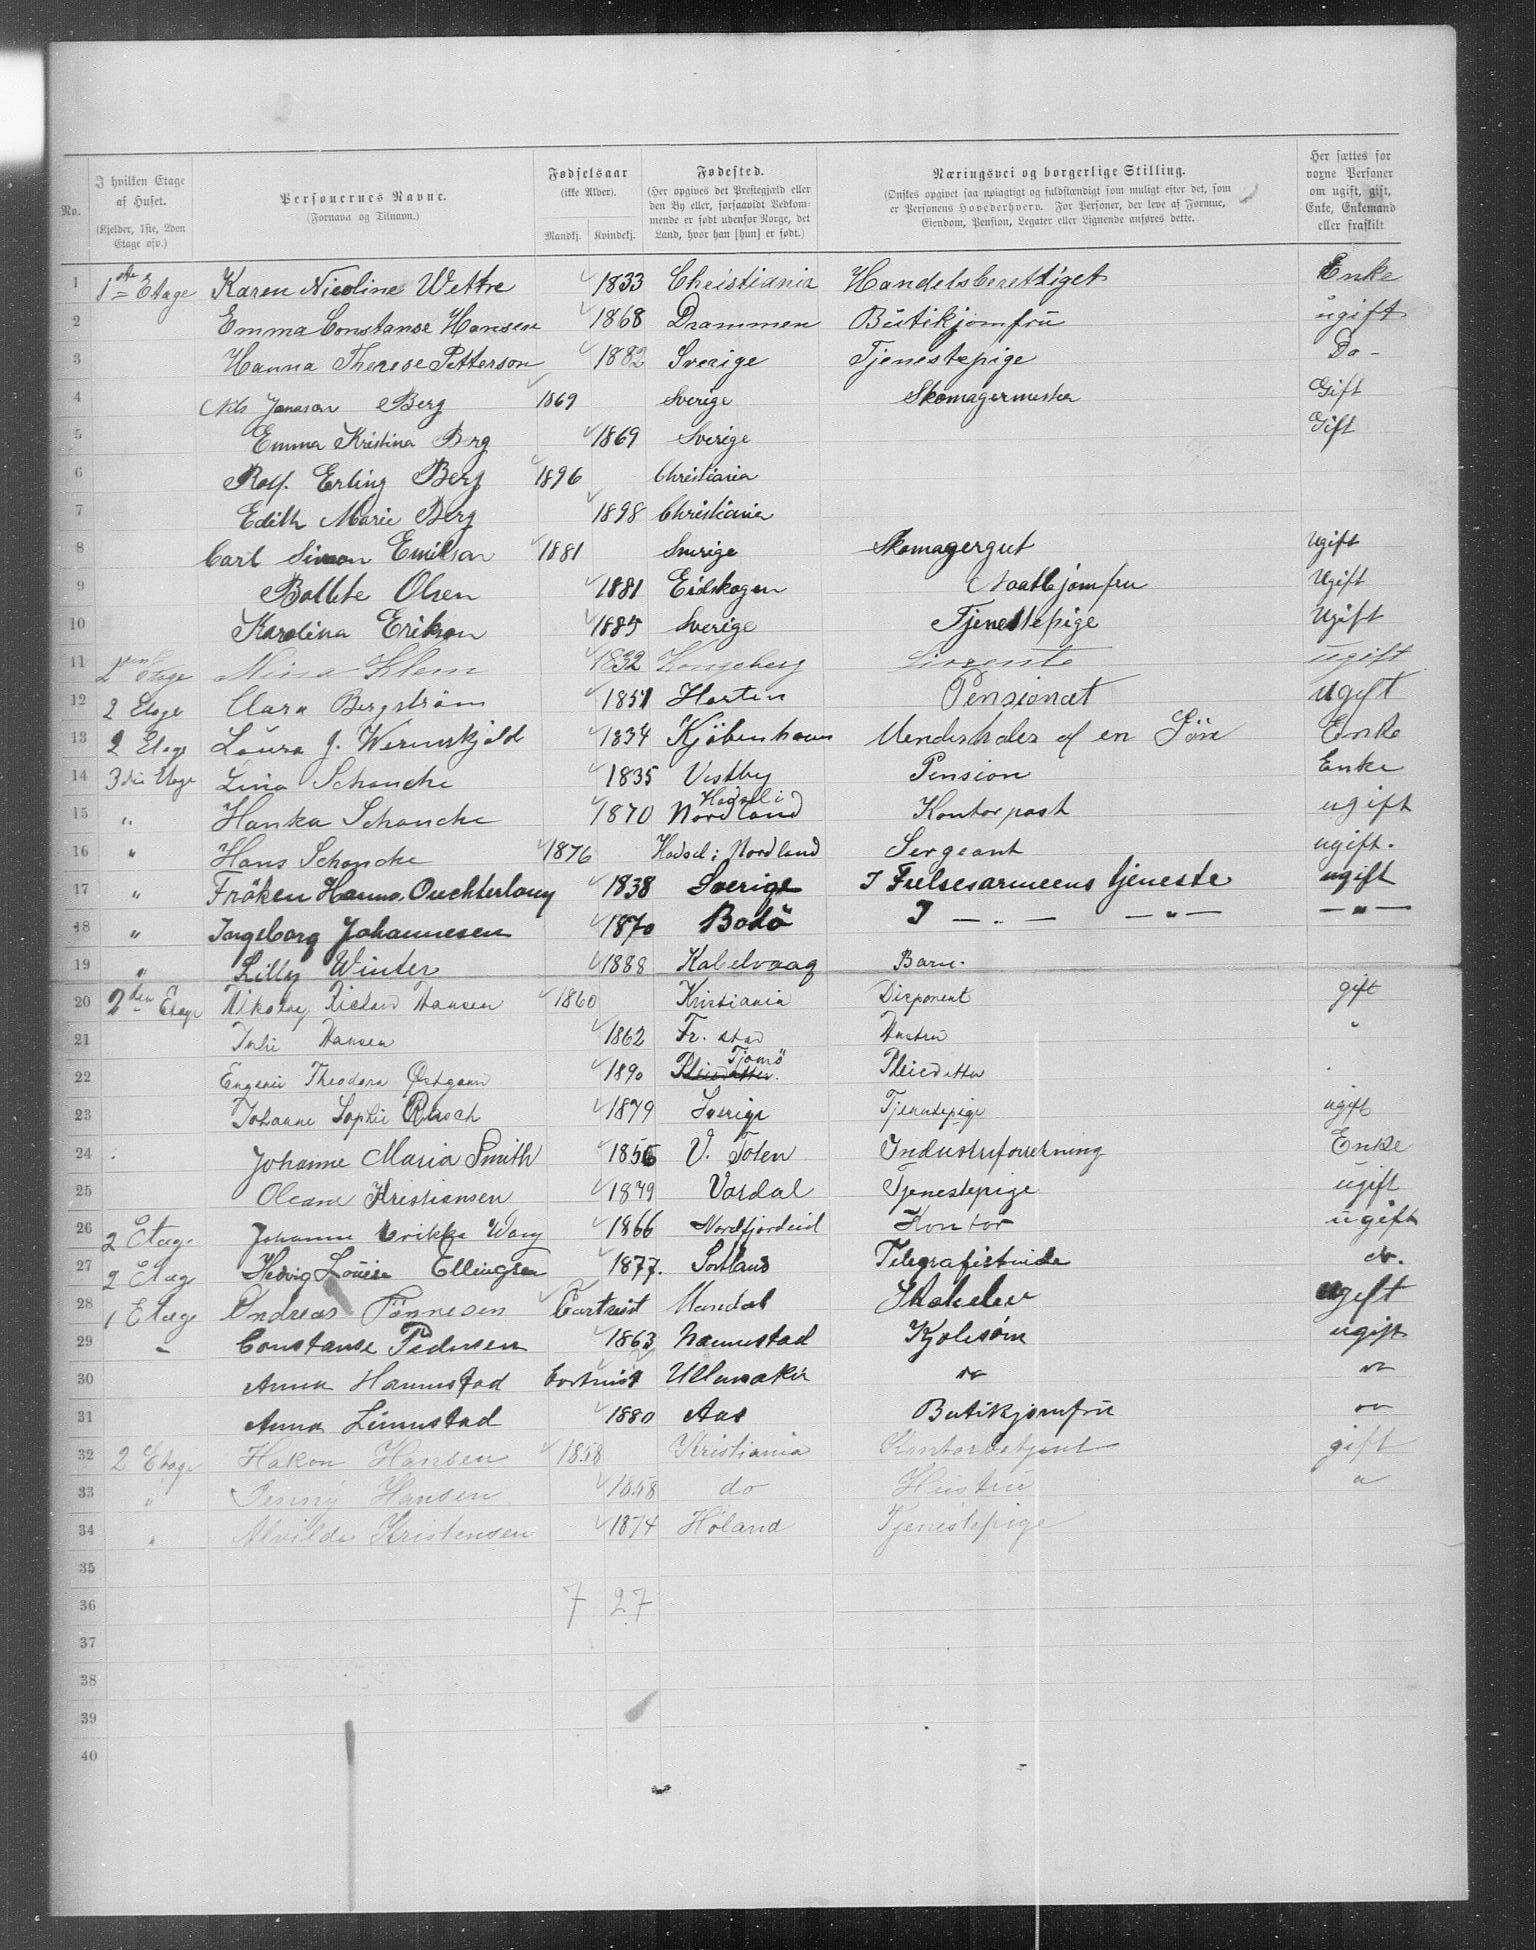 No.
I hvilken Etage af Huset. (Kjelder, 1ste, 2den Etage osv.)
Personernes Navne. (Fornavn og Tilnavn.)
Fødselsaar (ikke Alder).
Mandkj. Kvindekj.
Fødested. (Her opgives det Prestegjæld eller den By eller, forsaavidt Vedkommende er født udenfor Norge, det Land, hvor han [hun] er født.)
Næringsvei og borgerlige Stilling. (Ønskes opgivet saa nøiagtigt og fuldstændigt som muligt efter det, som er Personens Hovederhverv. For Personer, der leve af Formue, Eiendom, Pension, Legater eller Lignende anføres dette.
Her sættes for voxne Personer om ugift, gift, Enke, Enkemand eller fraskilt
1 1ste Etage Karen Nicoline Wettre 1833 Christiania Handelsberettiget Enke
2 Emma Constanse Hansen 1868 Drammen Butikjomfru ugift
3 Hanna Therese Petterson 1882 Sverige Tjenestepige Do-
4 Nils Jonason Berg 1869 Sverige Skomagermester Gift
5 Emma Kristina Berg 1869 Sverige Gift
6 Rolf Erling Berg 1896 Christiania
7 Edith Marie Berg 1898 Christiania
8 Carl Simon Emilson 1881 Sverige Skomagergut Ugift
9 Bollete Olsen 1881 Eidskogen Ugift
10 Karolina Erikson 1885 Sverige Tjenestepige Ugift
11 2den Etage Mina Klem 1832 Kongsberg ugift
12 2 Etage Clara Bergström 1851 Horten Pensionat ugift
13 2 Etage Laura J. Wermskjold 1834 Kjøbenhavn Underholdes af en Søn Enke
14 3die Etage Lina Schancke 1835 Vestby Pension Enke
15 " Hanka Schancke 1870 Hadsel i Nordland Kontorpost ugift
16 " Hans Schancke 1876 Hadsel i Nordland Sergeant ugift.
17 " Fröken Hanna Ouchterlony 1838 Sverige I Frelsesarmeens tjeneste ugift
18 " Ingeborg Johannesen 1870 Bodö I — " — — " — — " —
19 " Lilly Winter 1888 Kabelvaag Barn.
20 2den Etage Nikolay Richard Hansen 1860 Kristiania Disponent gift
21 Hansen 1862 Fr. stad Hustru "
22 Theodora Østgaard 1890 Tjømö Pleiedatter
23 Johanne Sophie Rusch 1879 Sverige Tjenestepige ugift
24 Johanne Maria Smith 1856 V. Toten Industriforretning Enke
25 Oleane Kristiansen 1879 Vardal Tjenestepige ugift
26 2 Etag. Johanne Erikka Wang 1866 Nordfjordeid Kontor ugift
27 2 Etag Hedvig Louise Ellingsen 1877. Sortland Telegrafistinde do.
28 1 Etag Andreas Tönnesen Bortreist Mandal ugift
29 " Constanse Pedersen 1863 Kjolesöm ugift
30 Anna Hannestad bortreist Ullensaker do do
31 Anna Linnestad 1880 Aas Butikjomfru do
32 2 Etage Hakon Hansen 1858 Kristiania Kontorbetjent gift
33 " Jenny Hansen 1858 do Hustru "
34 " Alvilde Kristensen 1874 Høland Tjenestepige
35
36 7 27
37
38
39
40